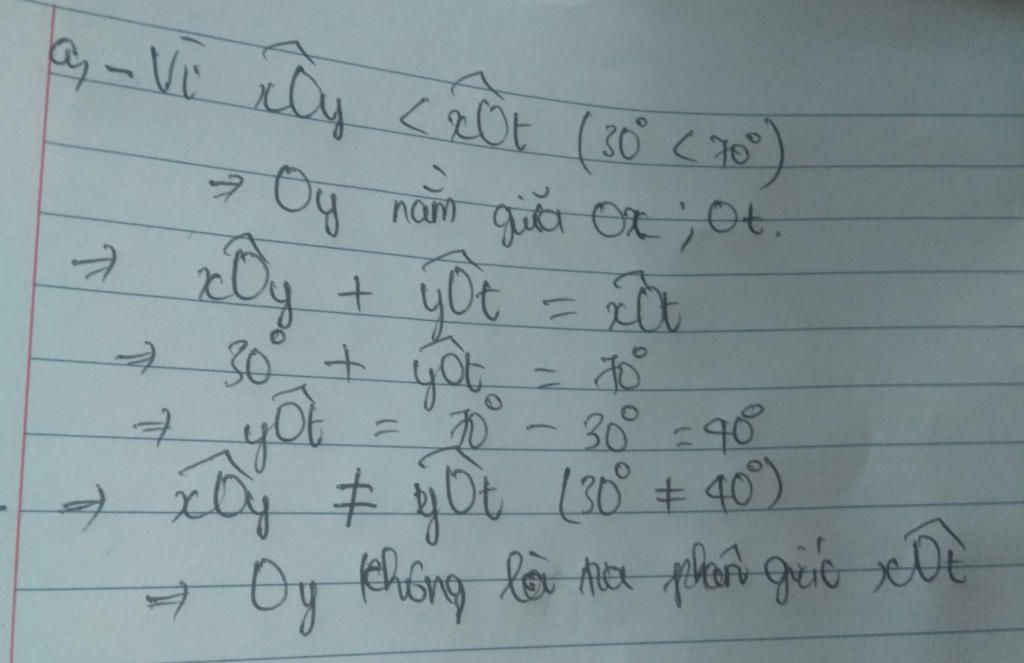 a, - Vì xÔy < xÔt (30° < 70°)
⇒ Oy nằm giữa Ox ; Ot.
⇒ xÔy + yÔt = xÔt
⇒ 30° + yÔt = 70°
⇒ yÔt = 70° - 30° = 40°
⇒ xÔy ≠ yÔt (30° ≠ 40°)
⇒ Oy không là tia phân giác xÔt